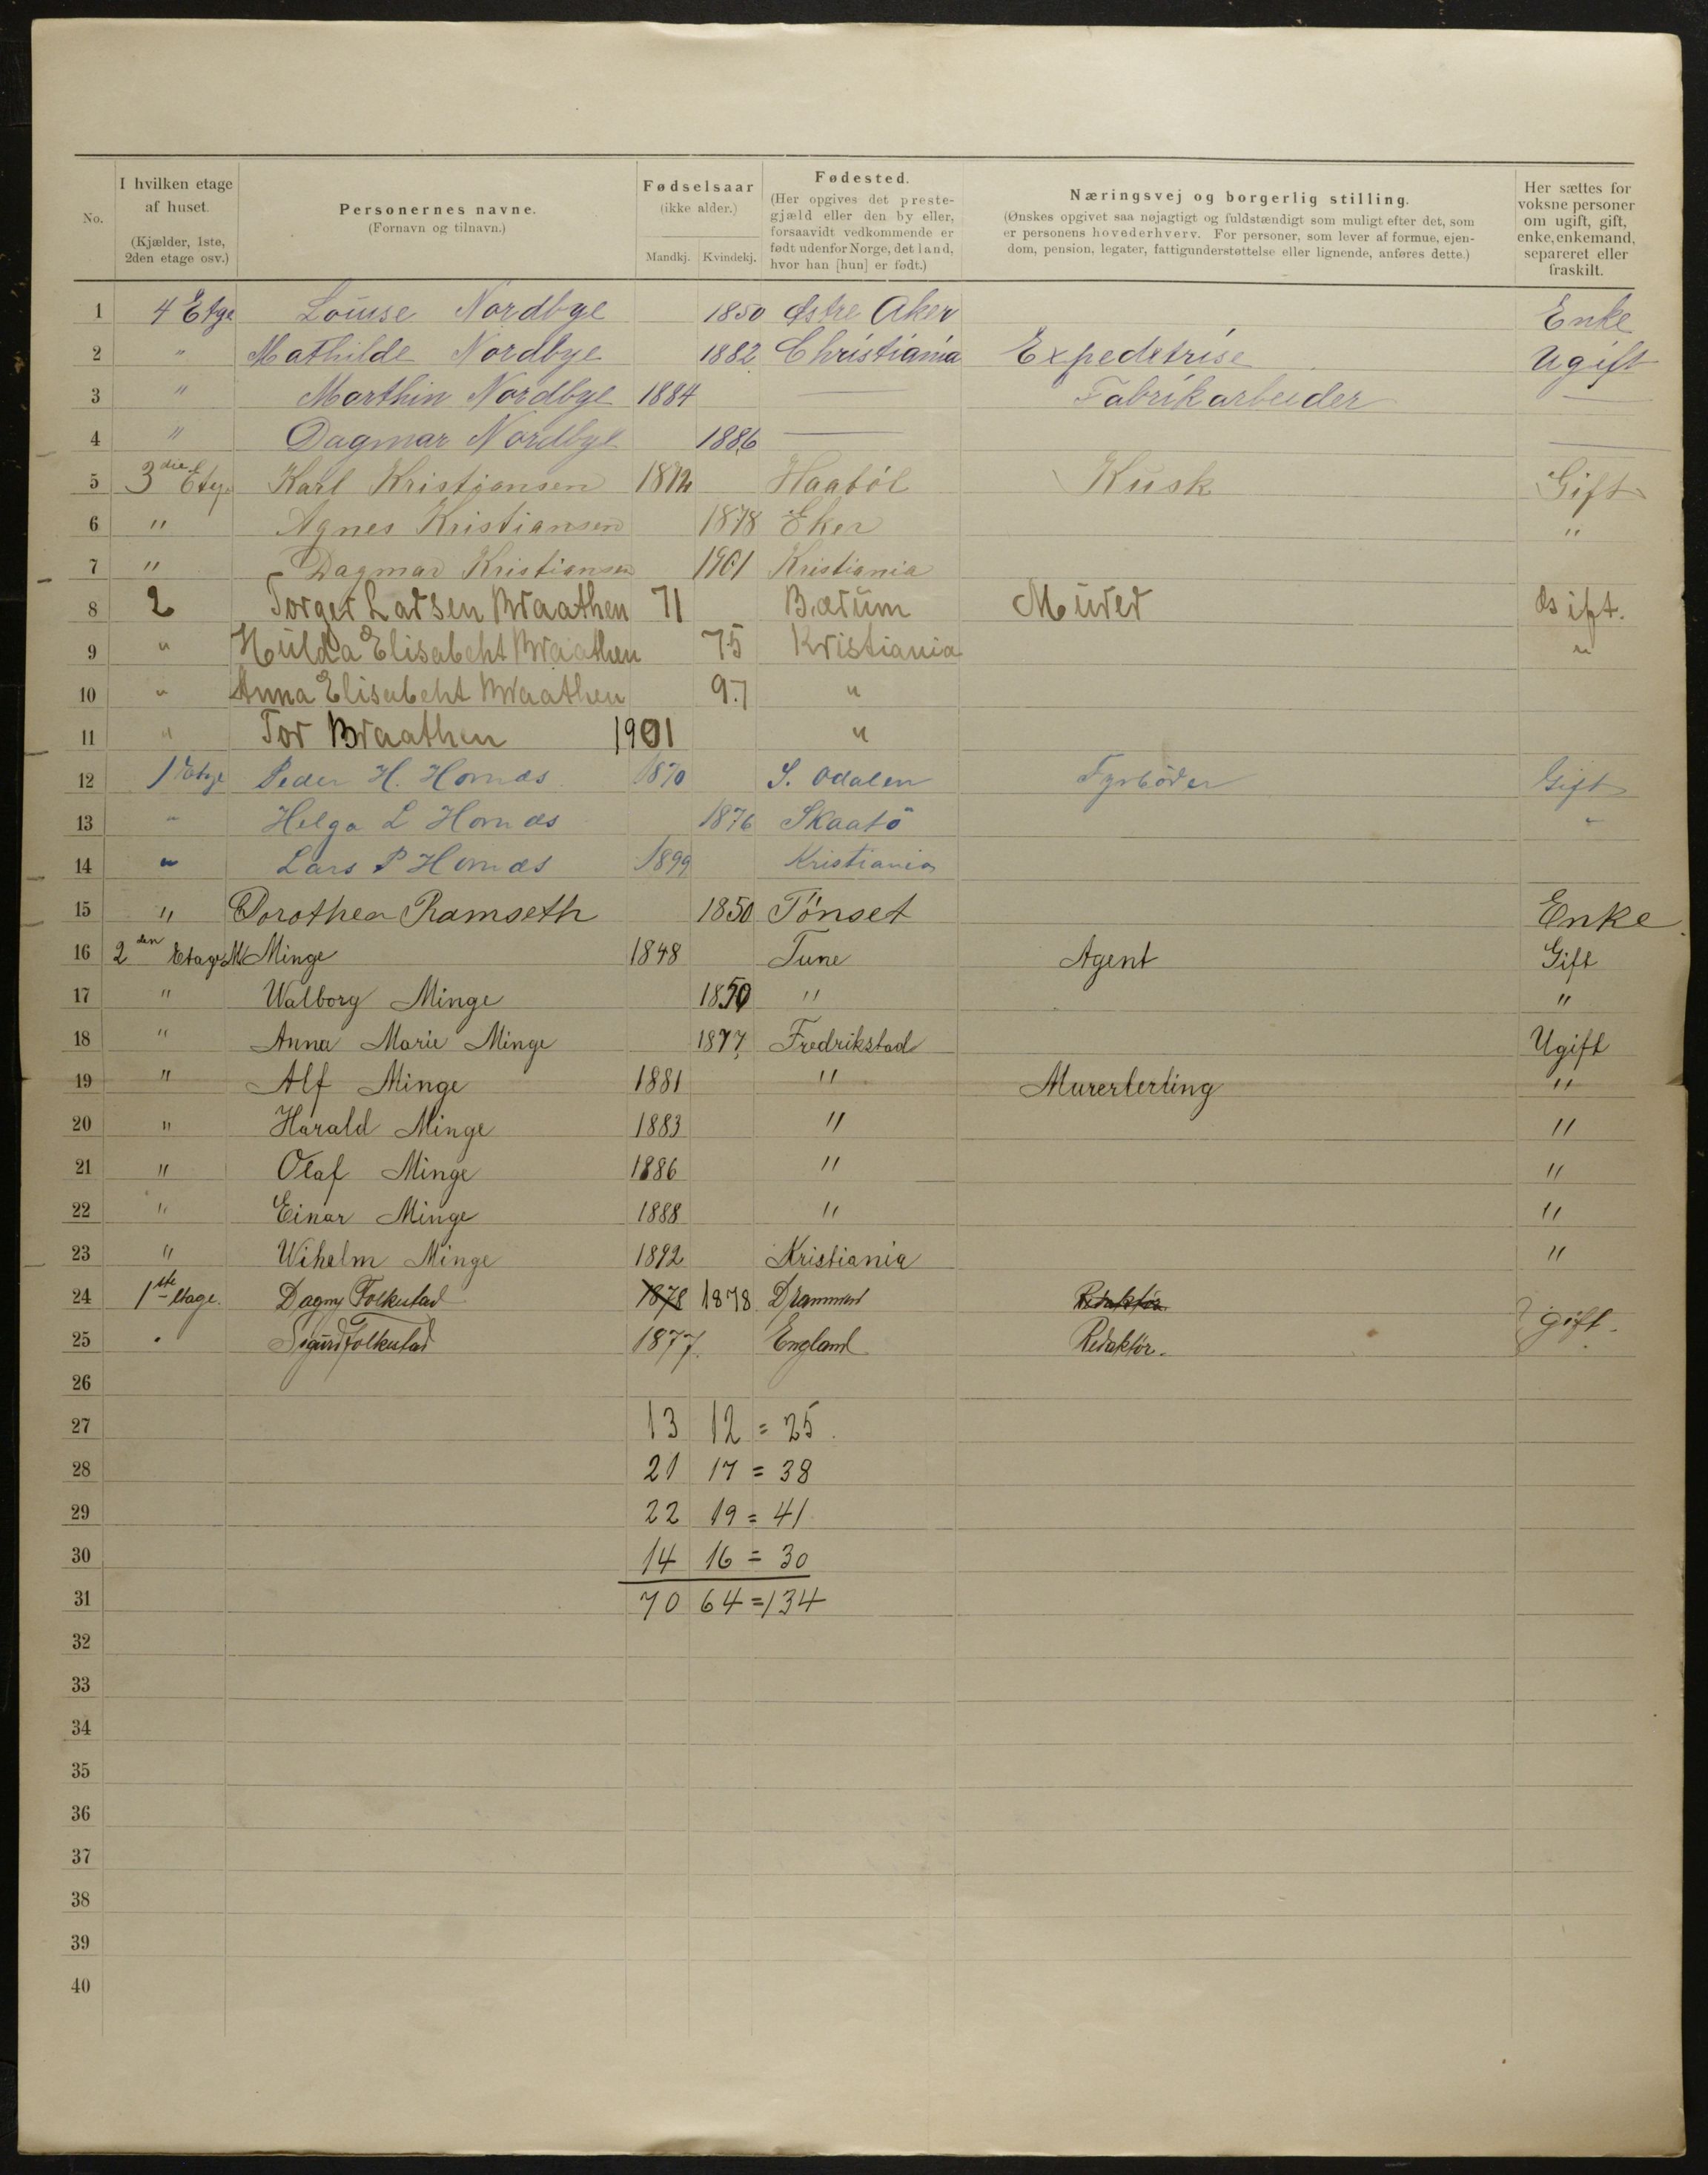 No.
I hvilken etage af huset. (Kjælder, 1ste, 2den etage osv.)
Personernes navne. (Fornavn og tilnavn.)
Fødselsaar (ikke alder.) Mandkj. Kvindekj.
Fødested. (Her opgives det prestegjæld eller den by eller, forsaavidt vedkommende er født udenfor Norge, det land, hvor han [hun] er født.)
Næringsvej og borgerlig stilling. (Ønskes opgivet saa nøjagtigt og fuldstændigt som muligt efter det, som er personens hovederhverv. For personer, som lever af formue, ejendom, pension, legater, fattigunderstøttelse eller lignende, anføres dette.)
Her sættes for voksne personer om ugift, gift, enke, enkemand, separeret eller fraskilt.
1 4 Etge Louise Nordbye 1850 Østre Aker Enke
2 " Mathilde Nordbye 1882 Christiania Expedetrise Ugift
3 " Marthin Nordbye 1884 — Fabrikarbeider —
4 " Dagmar Nordbye 1886 — —
5 3die Etge Karl Kristiansen 1872 Haabøl Kusk Gift
6 " Agnes Kristiansen 1878 Eker "
7 " Dagmar Kristiansen 1901 Kristiania
8 2 Torger Larsen Braathen 71 Bærum Murer Gift.
9 " Hulda Elisabeht Braathen 75 Kristiania "
10 " Anna Elisabeht Braathen 97 "
11 " Tor Braathen 1901 "
12 1 Etge Peder H. Hornæs 1870 S. Odalen Fyrbøder Gift
13 " Helga L Hornæs 1876 Skaatö "
14 " Lars P Hornæs 1899 Kristiania
15 " Dorothea Ramseth 1850 Tönset Enke.
16 2den Etage M Minge 1848 Tune Agent Gift
17 " Walborg Minge 1850 " "
18 " Anna Marie Minge 1877 Fredrikstad Ugift
19 " Alf Minge 1881 " Murerlerling "
20 " Harald Minge 1883 " "
21 " Olaf Minge 1886 " "
22 " Einar Minge 1888 " "
23 " Wihelm Minge 1892 Kristiania "
24 1ste etage. Dagny Folkestad 1878 1878 Drammen Redaktør gift.
25 " Sigurd Folkestad 1877. England Redaktør.
26
27 13 12 = 25.
28 21 17 = 38
29 22 19 = 41
30 14 16 = 30
31 70 64 = 134
32
33
34
35
36
37
38
39
40